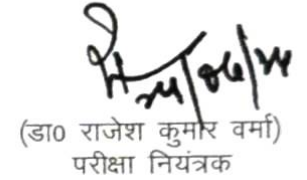 (डा० राजेश कुमार वर्मा)
परीक्षा नियंत्रक